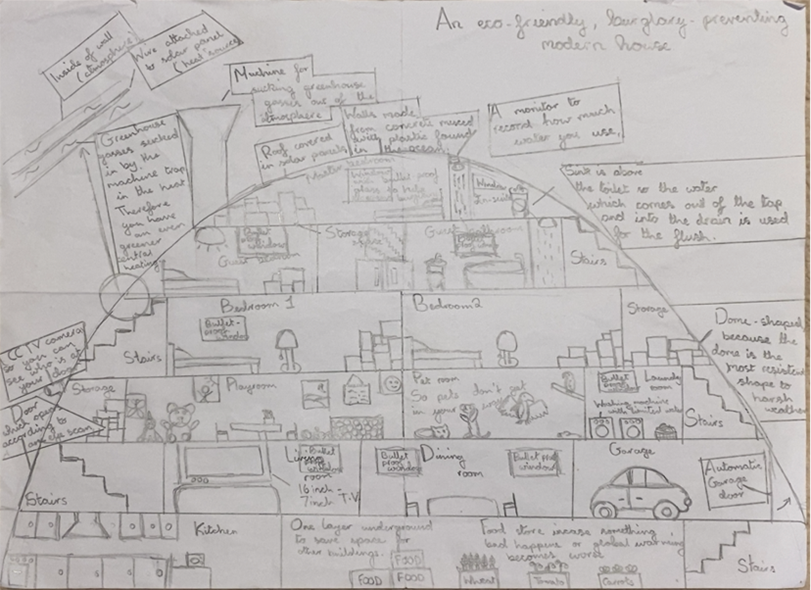 An eco-friendly, burglary-preventing
modern house
Inside of wall
(atmosphere)
Wire attached
to solar panel
(heat source)
Machine for
sucking greenhouse
gasses out of the
atmosphere
Greenhouse
gasses sucked
in by the
machine trap
in the heat.
Therefore
you have
an even
greener
central
heating
Roof covered
in solar panels
Walls made
from concrete mixed
with plastic found
in the ocean.
A monitor to
record how much
water you use.
Sink is above
the toilet so the water
which comes out of the tap
and into the drain is used
for the flush.
Master bedroom
Window
En-suite
Bullet
proof
window
Storage
space
Guest bedroom
Guest bathroom
Stairs
Bedroom 1
Bullet-
proof
window
Bedroom 2
Storage
Stairs
CCTV camera
so you can
see who is at
your door
Dome-shaped
because the
dome is the
most resistent
shape to
harsh
weather
Storage
Playroom
Pet room
So pets don't get
in your
Bullet
proof
window
Laundry
room
Washing machine
with limited water
Stairs
Door
which opens
according to
an eye scan
Stairs
Living
room
Bullet
proof
window
16 inch -
7 inch T.V
Bullet
proof
window
Dining
room
Bullet proof
window
Garage
Automatic
Garage
door
Kitchen
One layer underground
to save space for
other buildings.
Food store incase something
bad happens or global warming
becomes worse
FOOD
FOOD
FOOD
Wheat
Tomato
Carrots
Stairs